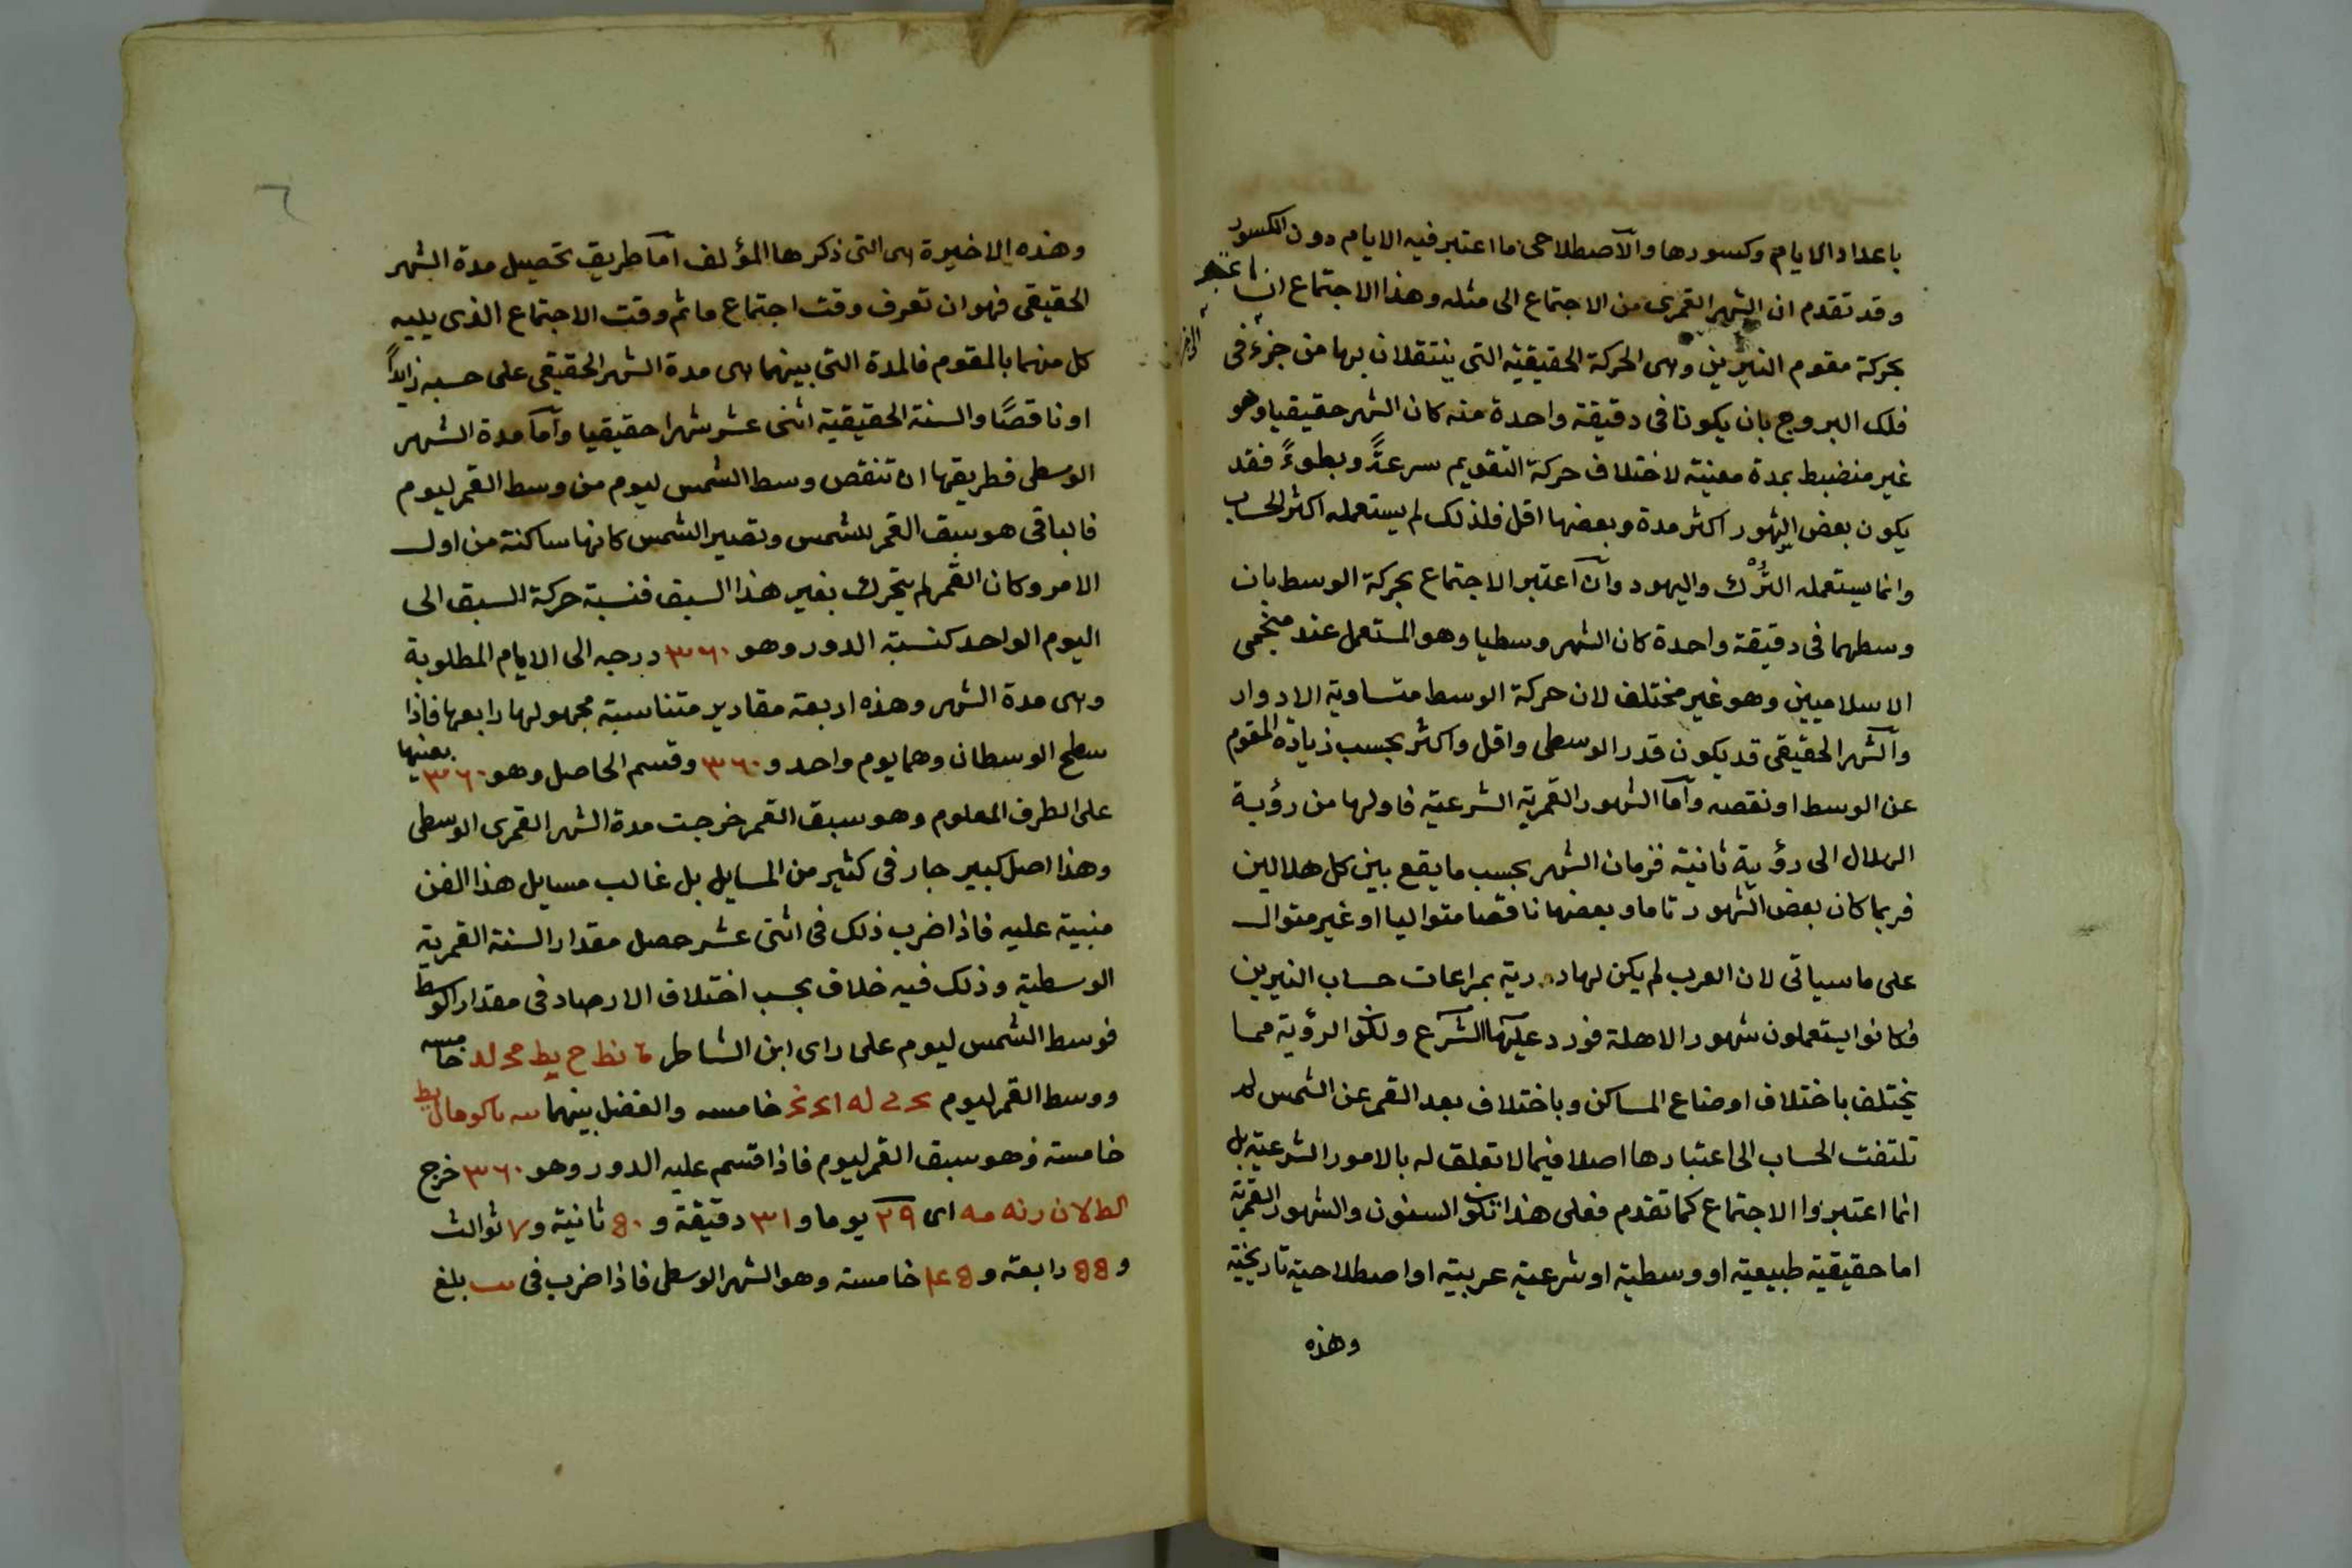 باعداد الايام وكسورها والآصطلاحى ما اعتبر فيه الايام دون الكسور
وقد تقدم ان الشهر القمرى من الاجتماع الى مثله وهذا الاجتماع ان اعتبر
بحركة مقوم النيرين وهى الحركة الحقيقية التى ينتقلان بها من جزء فى
فلك البروج بان يكونا فى دقيقة واحدة منه كان الشهر حقيقيا وهو
غير منضبط بمدة معينة لاختلاف حركة التقويم سرعةً وبطوءً فقد
يكون بعض الشهور اكثر مدة وبعضها اقل فلذلك لم يستعمله اكثر الحساب
وانما يستعمله الترك واليهود وان اعتبر الاجتماع بحركة الوسط بان
وسطهما فى دقيقة واحدة كان الشهر وسطيا وهو المستعمل عند منجمى
الاسلاميين وهو غير مختلف لان حركة الوسط متساوية الادوار
والشهر الحقيقى قد يكون قدر الوسطى واقل واكثر بحسب زيادة المقوم
عن الوسط او نقصه وآما الشهور القمرية الشرعية فاولها من رؤية
الهلال الى رؤية ثانية فزمان الشهر بحسب ما يقع بين كل هلالين
فربما كان بعض الشهور تاما وبعضها ناقصا متواليا او غير متوال
على ما سياتى لان العرب لم يكن لها درية بمراعات حساب النيرين
فكانوا يستعملون شهور الاهلة فورد عليها الشرع ولكون الرؤية مما
يختلف باختلاف اوضاع المساكن وباختلاف بعد القمر عن الشمس لم
تلتفت الحساب الى اعتبارها اصلا فيما لا تعلق له بالامور الشرعية بل
انما اعتبروا الاجتماع كما تقدم فعلى هذا تكون السنون والشهور القمرية
اما حقيقية طبيعية او وسطية او شرعية عربية او اصطلاحية تاريخية
وهذه
٦
وهذه الاخيرة هى التى ذكرها المؤلف آما طريق تحصيل مدة الشهر
الحقيقى فهو ان تعرف وقت اجتماع ما ثم وقت الاجتماع الذى يليه
كل منهما بالمقوم فالمدة التى بينهما هى مدة الشهر الحقيقى على حسبه زايداً
او ناقصًا والسنة الحقيقية اثنى عشر شهرا حقيقيا وآما مدة الشهر
الوسطى فطريقها ان تنقص وسط الشمس ليوم من وسط القمر ليوم
فالباقى هو سبق القمر للشمس وتصير الشمس كانها ساكنة من اول
الامر وكان القمر لم يتحرك بغير هذا السبق فنسبة حركة السبق الى
اليوم الواحد كنسبة الدور وهو ٣٦٠ درجه الى الايام المطلوبة
وهى مدة الشهر وهذه اربعة مقادير متناسبة مجهولها رابعها فاذا
سطح الوسطان وهما يوم واحد و ٣٦٠ وقسم الحاصل وهو ٣٦٠ بعينها
على الطرف المعلوم وهو سبق القمر خرجت مدة الشهر القمرى الوسطى
وهذا اصل كبير جار فى كثير من المسايل بل غالب مسايل هذا الفن
مبنية عليه فاذا ضرب ذلك فى اثنى عشر حصل مقدار السنة القمرية
الوسطية وذلك فيه خلاف بحسب اختلاف الارصاد فى مقدار الوسط
فوسط الشمس ليوم على راى ابن الشاطر ة نط ح يط مح لد خامسه
ووسط القمر ليوم خامسه والفضل بينهما
خامسة وهو سبق القمر ليوم فاذا قسم عليه الدور وهو ٣٦٠ خرج
اى ٢٩ يوما و ٣١ دقيقة و ٥٠ ثانية و ٧ ثوالث
و ٥٥ رابعة و ٤٥ خامسة وهو الشهر الوسطى فاذا ضرب فى يب بلغ